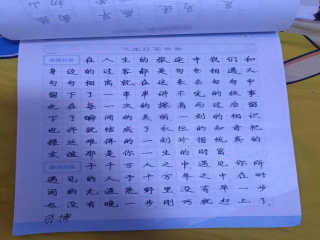 人生过客匆匆
在人生的旅途中我们和
身边的过客都是匆匆相遇又
匆匆相离就在这来去匆匆中
留下了一串串讲不完的故事
也在每一次的擦肩而过后留
下了瞬间的美丽一刻的相识
也许就结成了永恒的知音把
握这难得的一刻珍惜纯真的
友谊那是你一生的财富
于千万人之中遇见你所
遇见的人于千万年之中在时
间的无涯荒野里没有早一步
也没有晚一步刚巧就赶上了